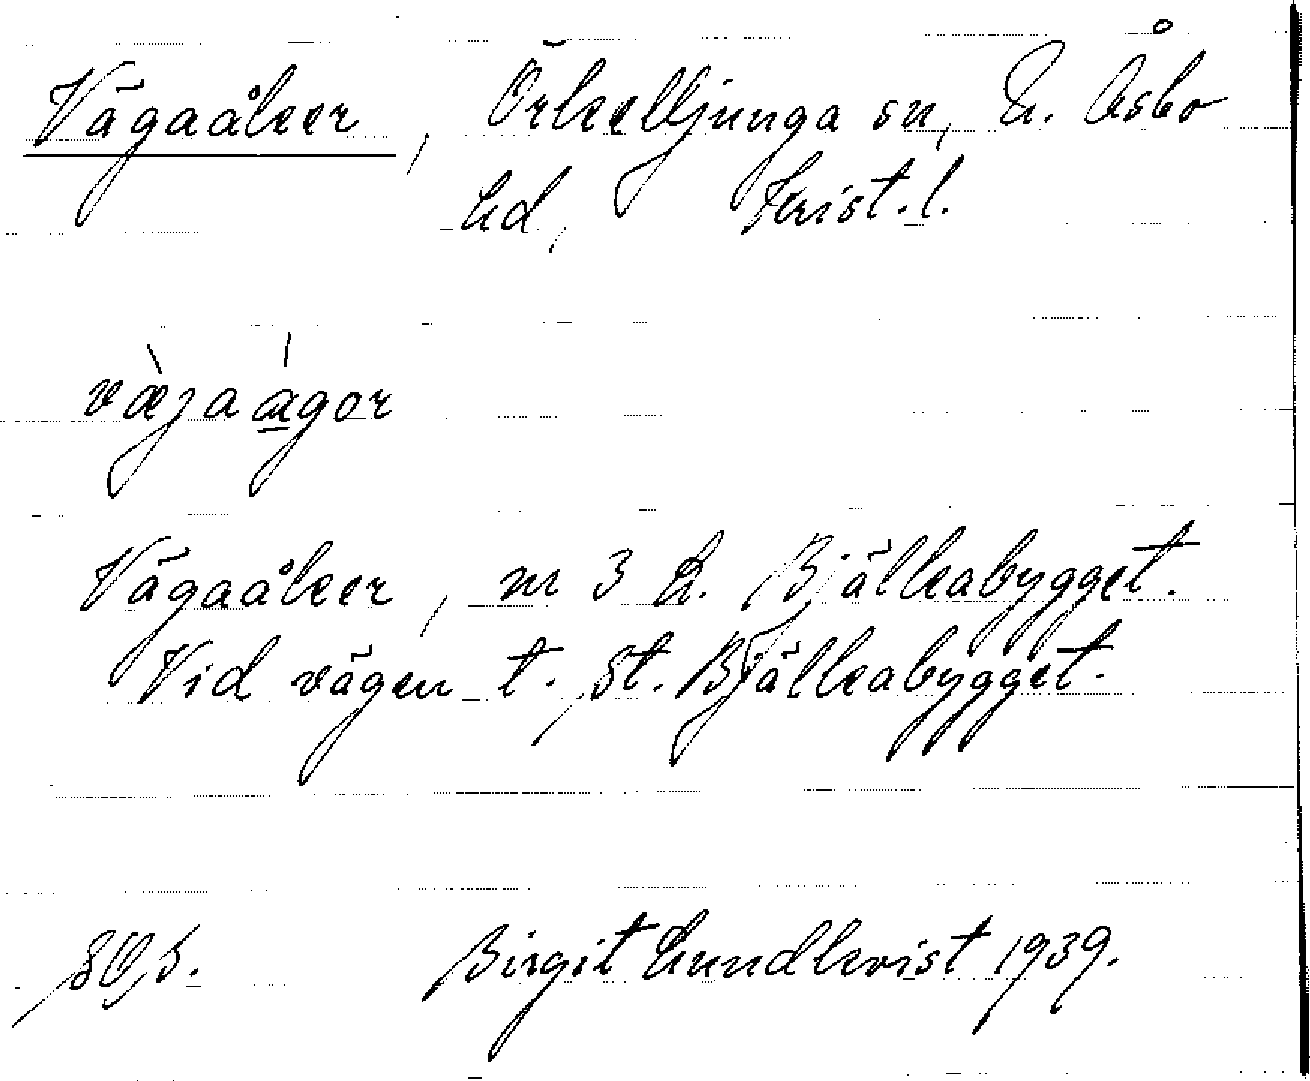 Vägaåker, Örkelljunga sn, N. Åsbo
hd, Krist. l.
væ̀jaágor
Vägaåker, nr 3 L. Bjälkabygget.
Vid vägen t. St. Bjälkabygget.
Birgit Lundkvist 1939.